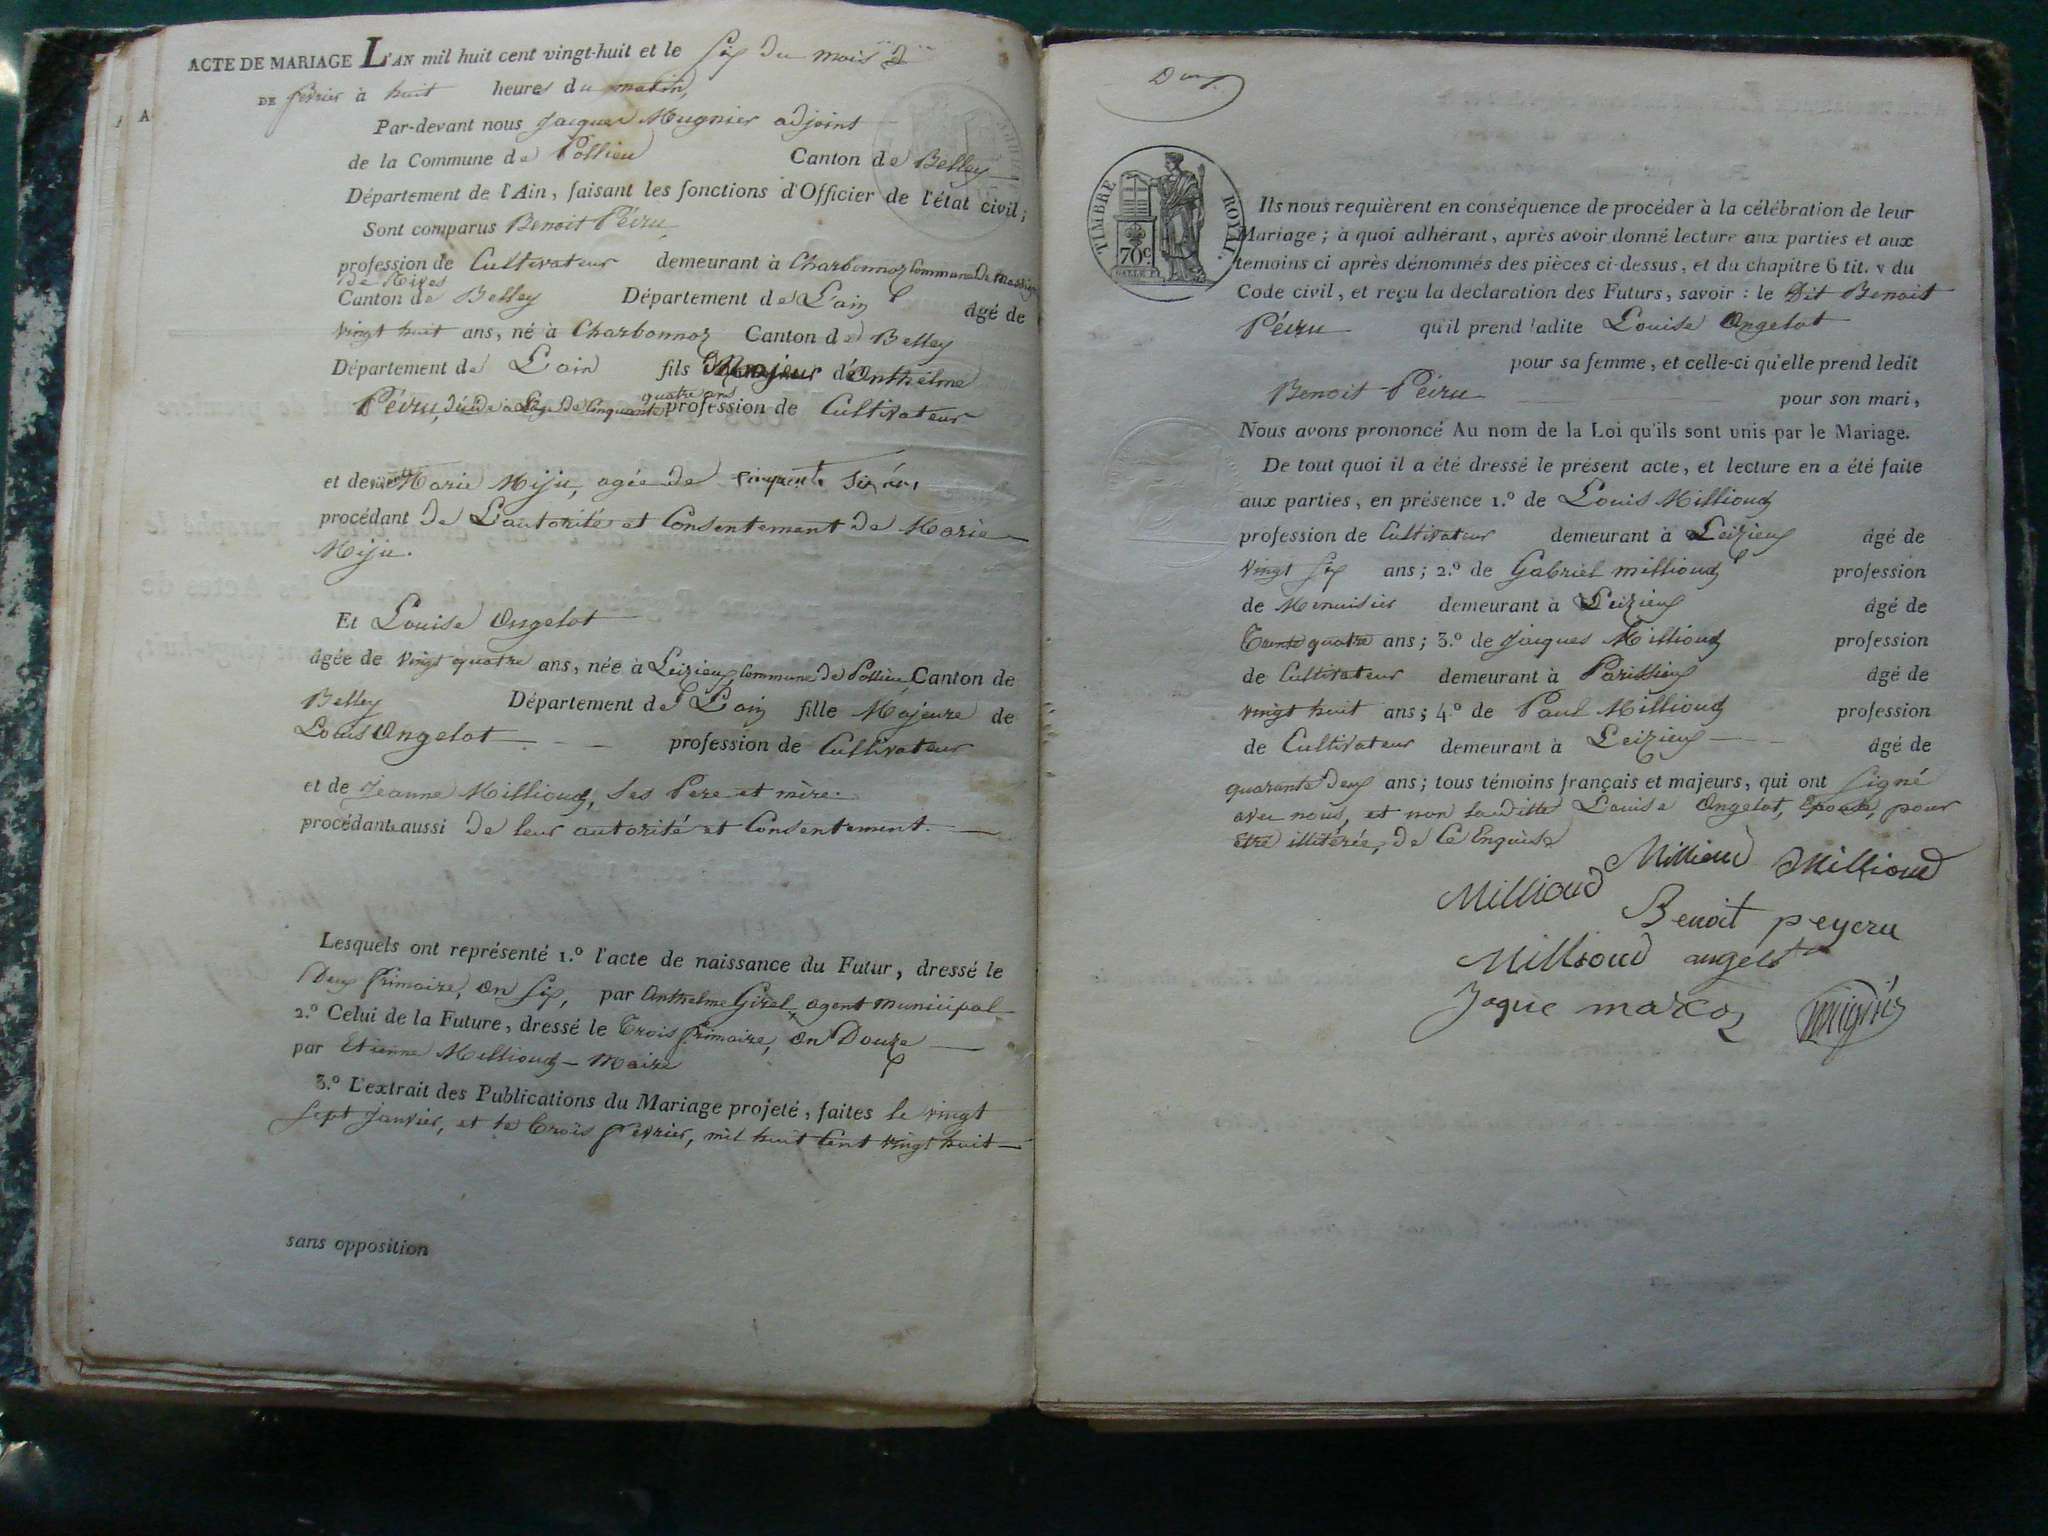 ACTE DE MARIAGE L'AN mil huit cent vingt-huit et le Six du mois d
DE février à huit heures du matin,
A
Par-devant nous Jacques Mugnier adjoint
de la Commune de Pollieu Canton de Belley
Département de l'Ain, faisant les fonctions d'Officier de l'état civil;
Sont comparus Benoit Péiru
profession de Cultivateur demeurant à Charbonnoz Commune De massig
De Rives
Canton de Belley Département de L'ain âgé de
vingt huit ans, né à Charbonnoz Canton de Belley
Département de L'ain fils Majeur d'Anthelme
quatre ans
Péiru, décédé a L'age De Cinquante profession de Cultivateur
et de Marie Miju, agée de Cinquante Six ans
procédant De L'autorité et Consentement De Marie
Miju.
Et Louise Angelot
âgée de vingt quatre ans, née à Leizieux, Commune De Pollieu Canton de
Belley Département de L'ain fille Majeure de
Louis Angelot profession de Cultivateur
et de Jeanne Millioud, Ses Pere et mère.
procédante aussi De leur autorité et Consentement.
Lesquels ont représenté 1.º l'acte de naissance du Futur, dressé le
Deux frimaire, an Six, par Anthelme Girel, agent municipal
2.º Celui de la Future, dressé le Trois frimaire, an Douze
par Etienne Millioud - Maire
3.º L'extrait des Publications du Mariage projeté, faites le vingt
Sept Janvier, et le Trois fevrier, mil huit Cent vingt huit
sans opposition
TIMBRE ROYAL
70c
Ils nous requièrent en conséquence de procéder à la célébration de leur
Mariage; à quoi adhérant, après avoir donné lecture aux parties et aux
temoins ci après dénommés des pièces ci-dessus, et du chapitre 6 tit. v du
Code civil, et reçu la déclaration des Futurs, savoir: le Dit Benoit
Péiru qu'il prend ladite Louise Angelot
pour sa femme, et celle-ci qu'elle prend ledit
Benoit Péiru pour son mari,
Nous avons prononcé Au nom de la Loi qu'ils sont unis par le Mariage.
De tout quoi il a été dressé le présent acte, et lecture en a été faite
aux parties, en présence 1.º de Louis Millioud
profession de Cultivateur demeurant à Leizieux âgé de
vingt Six ans; 2.º de Gabriel millioud profession
de Menuisier demeurant à Leizieux âgé de
Trente quatre ans; 3.º de Jacques Millioud profession
de Cultivateur demeurant à Parissieux âgé de
vingt huit ans; 4.º de Paul Millioud profession
de Cultivateur demeurant à Leizieux âgé de
quarante Deux ans; tous témoins français et majeurs, qui ont Signé
avec nous, et non laditte Louise Angelot, Epouse, pour
Etre illitérée, De Ce Enquise
Millioud Millioud Millioud
Benoit peyeru
Millioud angelot
Jaque marcoz mugnier